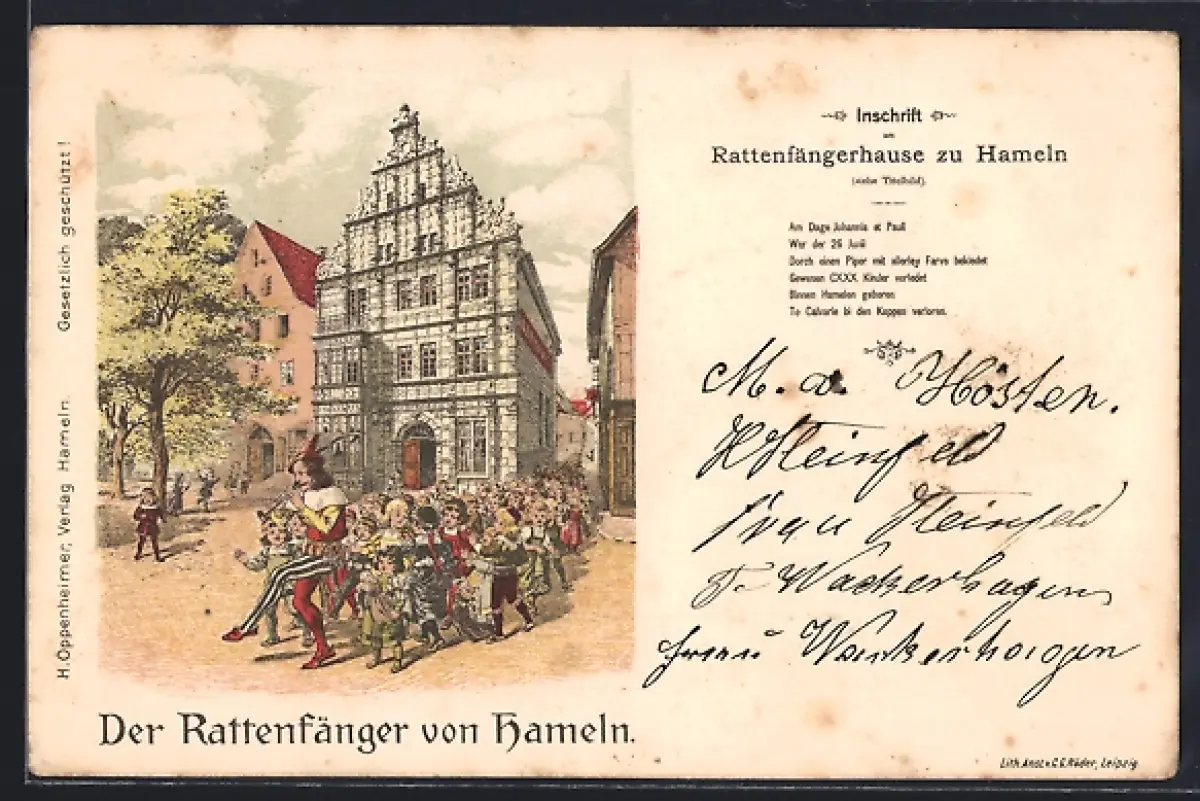 Gesetzlich geschützt!
H. Oppenheimer, Verlag Hameln.
Der Rattenfänger von Hameln.
Inschrift
am
Rattenfängerhause zu Hameln
(siehe Titelbild).
Am Dage Johannis et Pauli
War der 26 Junii
Dorch einen Piper mit allerley Farve bekledet
Gewesen CXXX Kinder verledet
Binnen Hamelen geboren
To Calvarie bi den Koppen verloren.
M. d.
H Steinfeld
Frau Steinfeld
Wackerhagen
Frau Wackerhagen
Lith. Anst. v. C. G. Röder, Leipzig